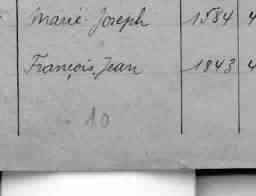 Marie Joseph 1584 4
François Jean 1843 4
10